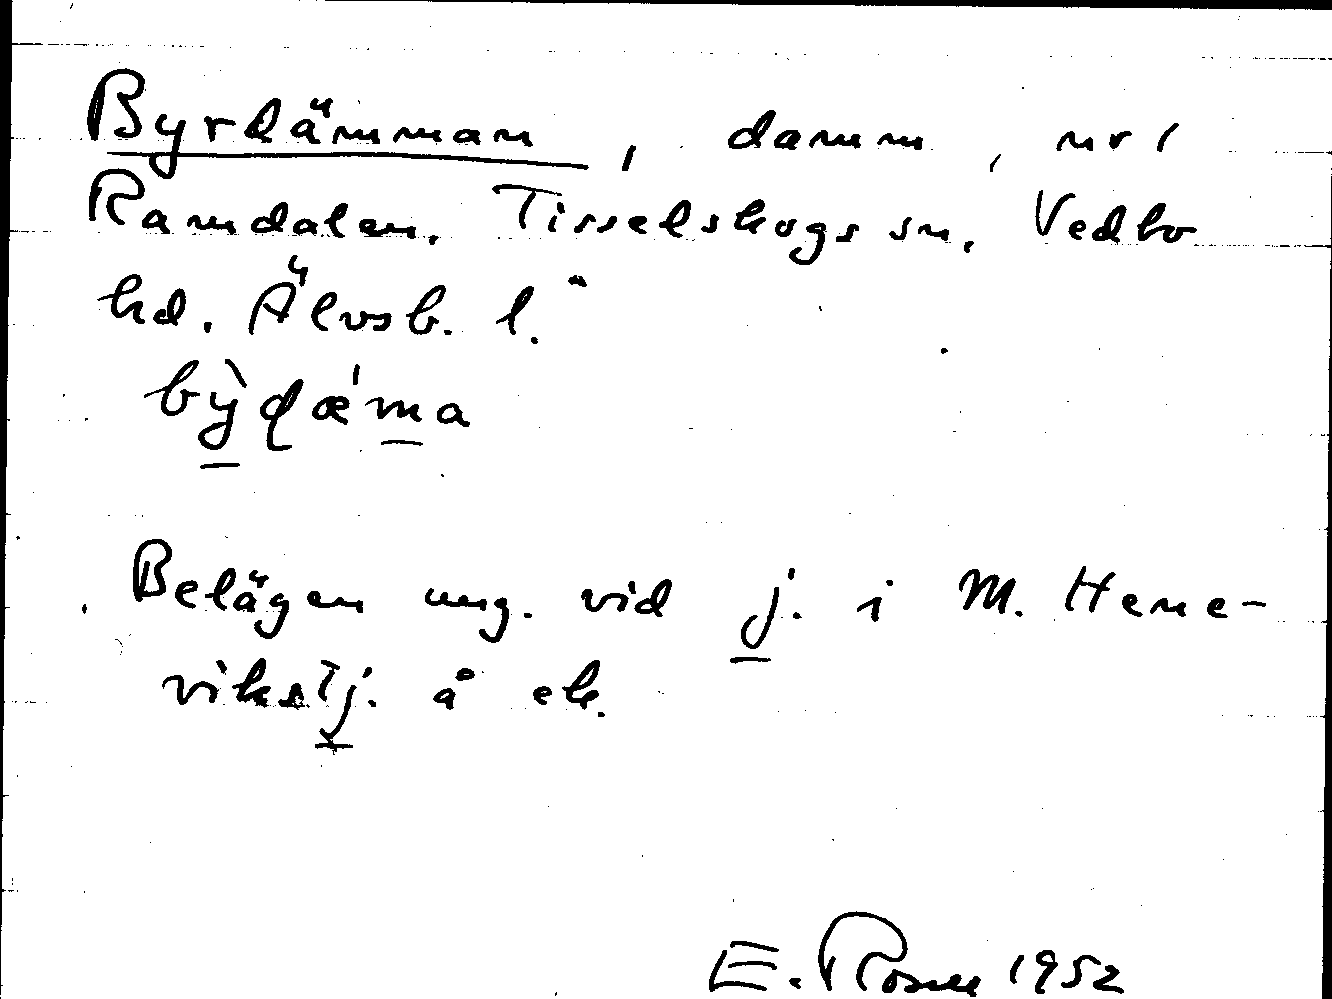 Byrdämman, damm, nr 1
Ramdalen. Tisselskogs sn. Vedbo
hd. Älvsb. l.
bỳḍæ'ma
Belägen ung. vid j. i M. Hene-
vikstj. å ek.
E. Rosen 1952